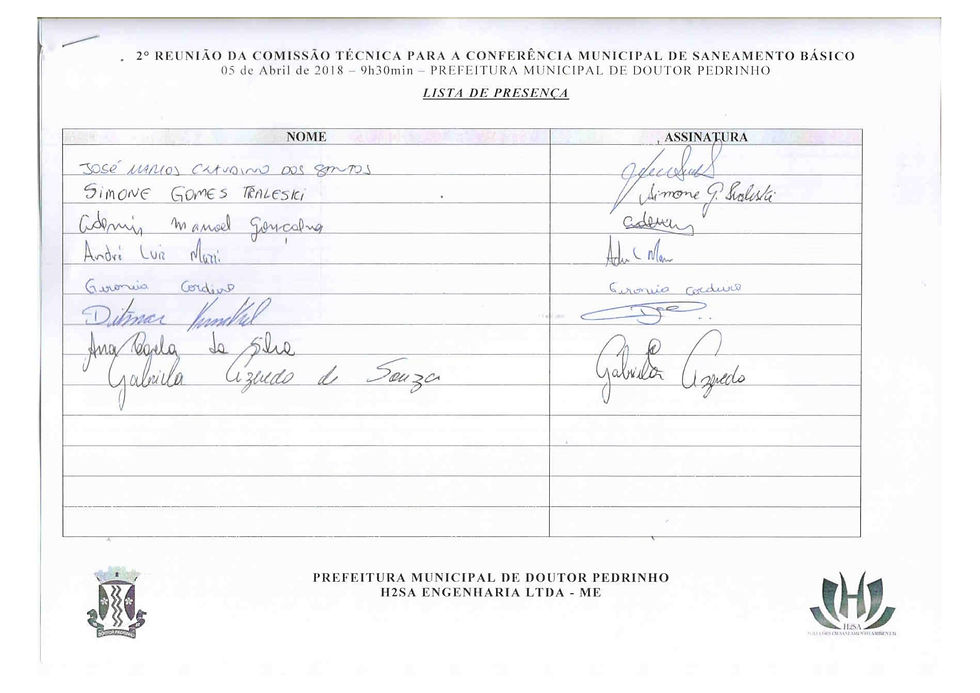 2° REUNIÃO DA COMISSÃO TÉCNICA PARA A CONFERÊNCIA MUNICIPAL DE SANEAMENTO BÁSICO
05 de Abril de 2018 – 9h30min – PREFEITURA MUNICIPAL DE DOUTOR PEDRINHO
LISTA DE PRESENÇA
NOME ASSINATURA
JOSÉ MARCOS CLAUDINO DOS SANTOS
SIMONE GOMES TRALESKI Simone G. Traleski
Ademir Manoel Gonçalves Ademir
André Luiz
Geronio Cordeiro Geronio Cordeiro
Ditmar
Ana Paula da Silva
Gabriela Azevedo de Souza Gabriela Azevedo
PREFEITURA MUNICIPAL DE DOUTOR PEDRINHO
H2SA ENGENHARIA LTDA - ME
DOUTOR PEDRINHO
H2SA